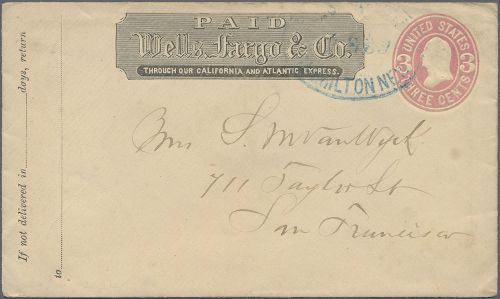 PAID
Wells, Fargo & Co.
THROUGH OUR CALIFORNIA AND ATLANTIC EXPRESS.
UNITED STATES
3 3
THREE CENTS
MILTON NEV
Mrs S. M Van Wyck
711 Taylor St
San Francisco
If not delivered in ........ days, return
to